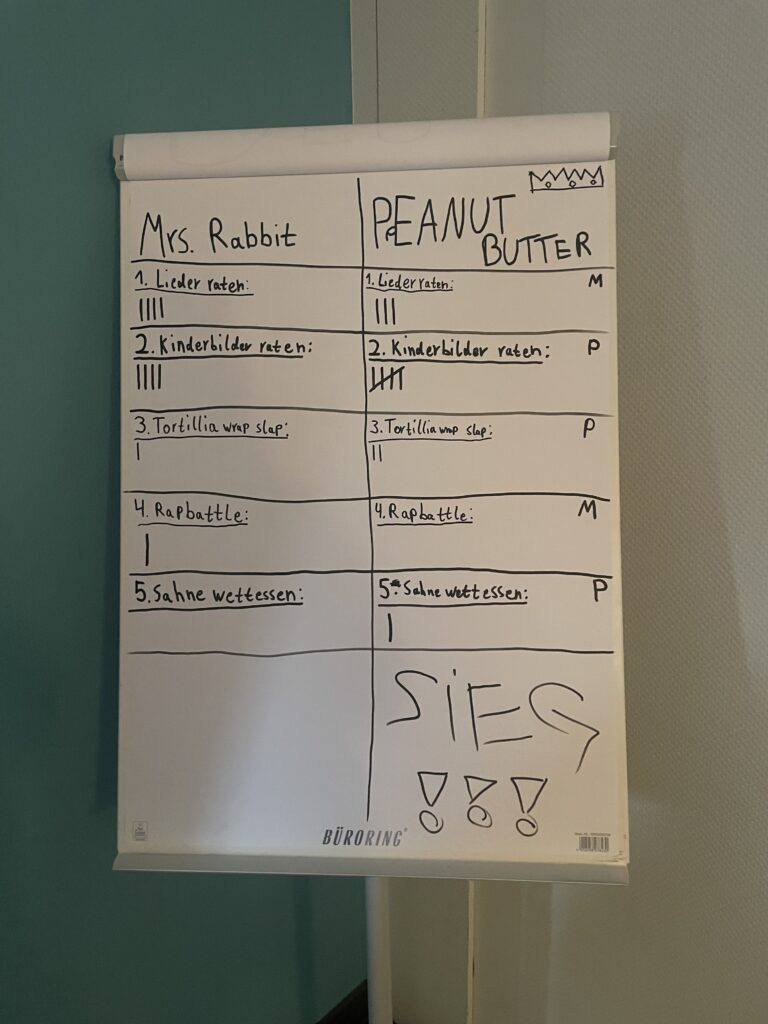 Mrs. Rabbit
1. Lieder raten:
||||
2. Kinderbilder raten:
||||
3. Tortillia wrap slap:
|
4. Rapbattle:
|
5. Sahne wettessen:
PEANUT
BUTTER
1. Lieder raten: M
|||
2. Kinderbilder raten: P
3. Tortillia wrap slap: P
||
4. Rapbattle: M
5. Sahne wettessen: P
|
SiEG
!!!
BÜRORING®